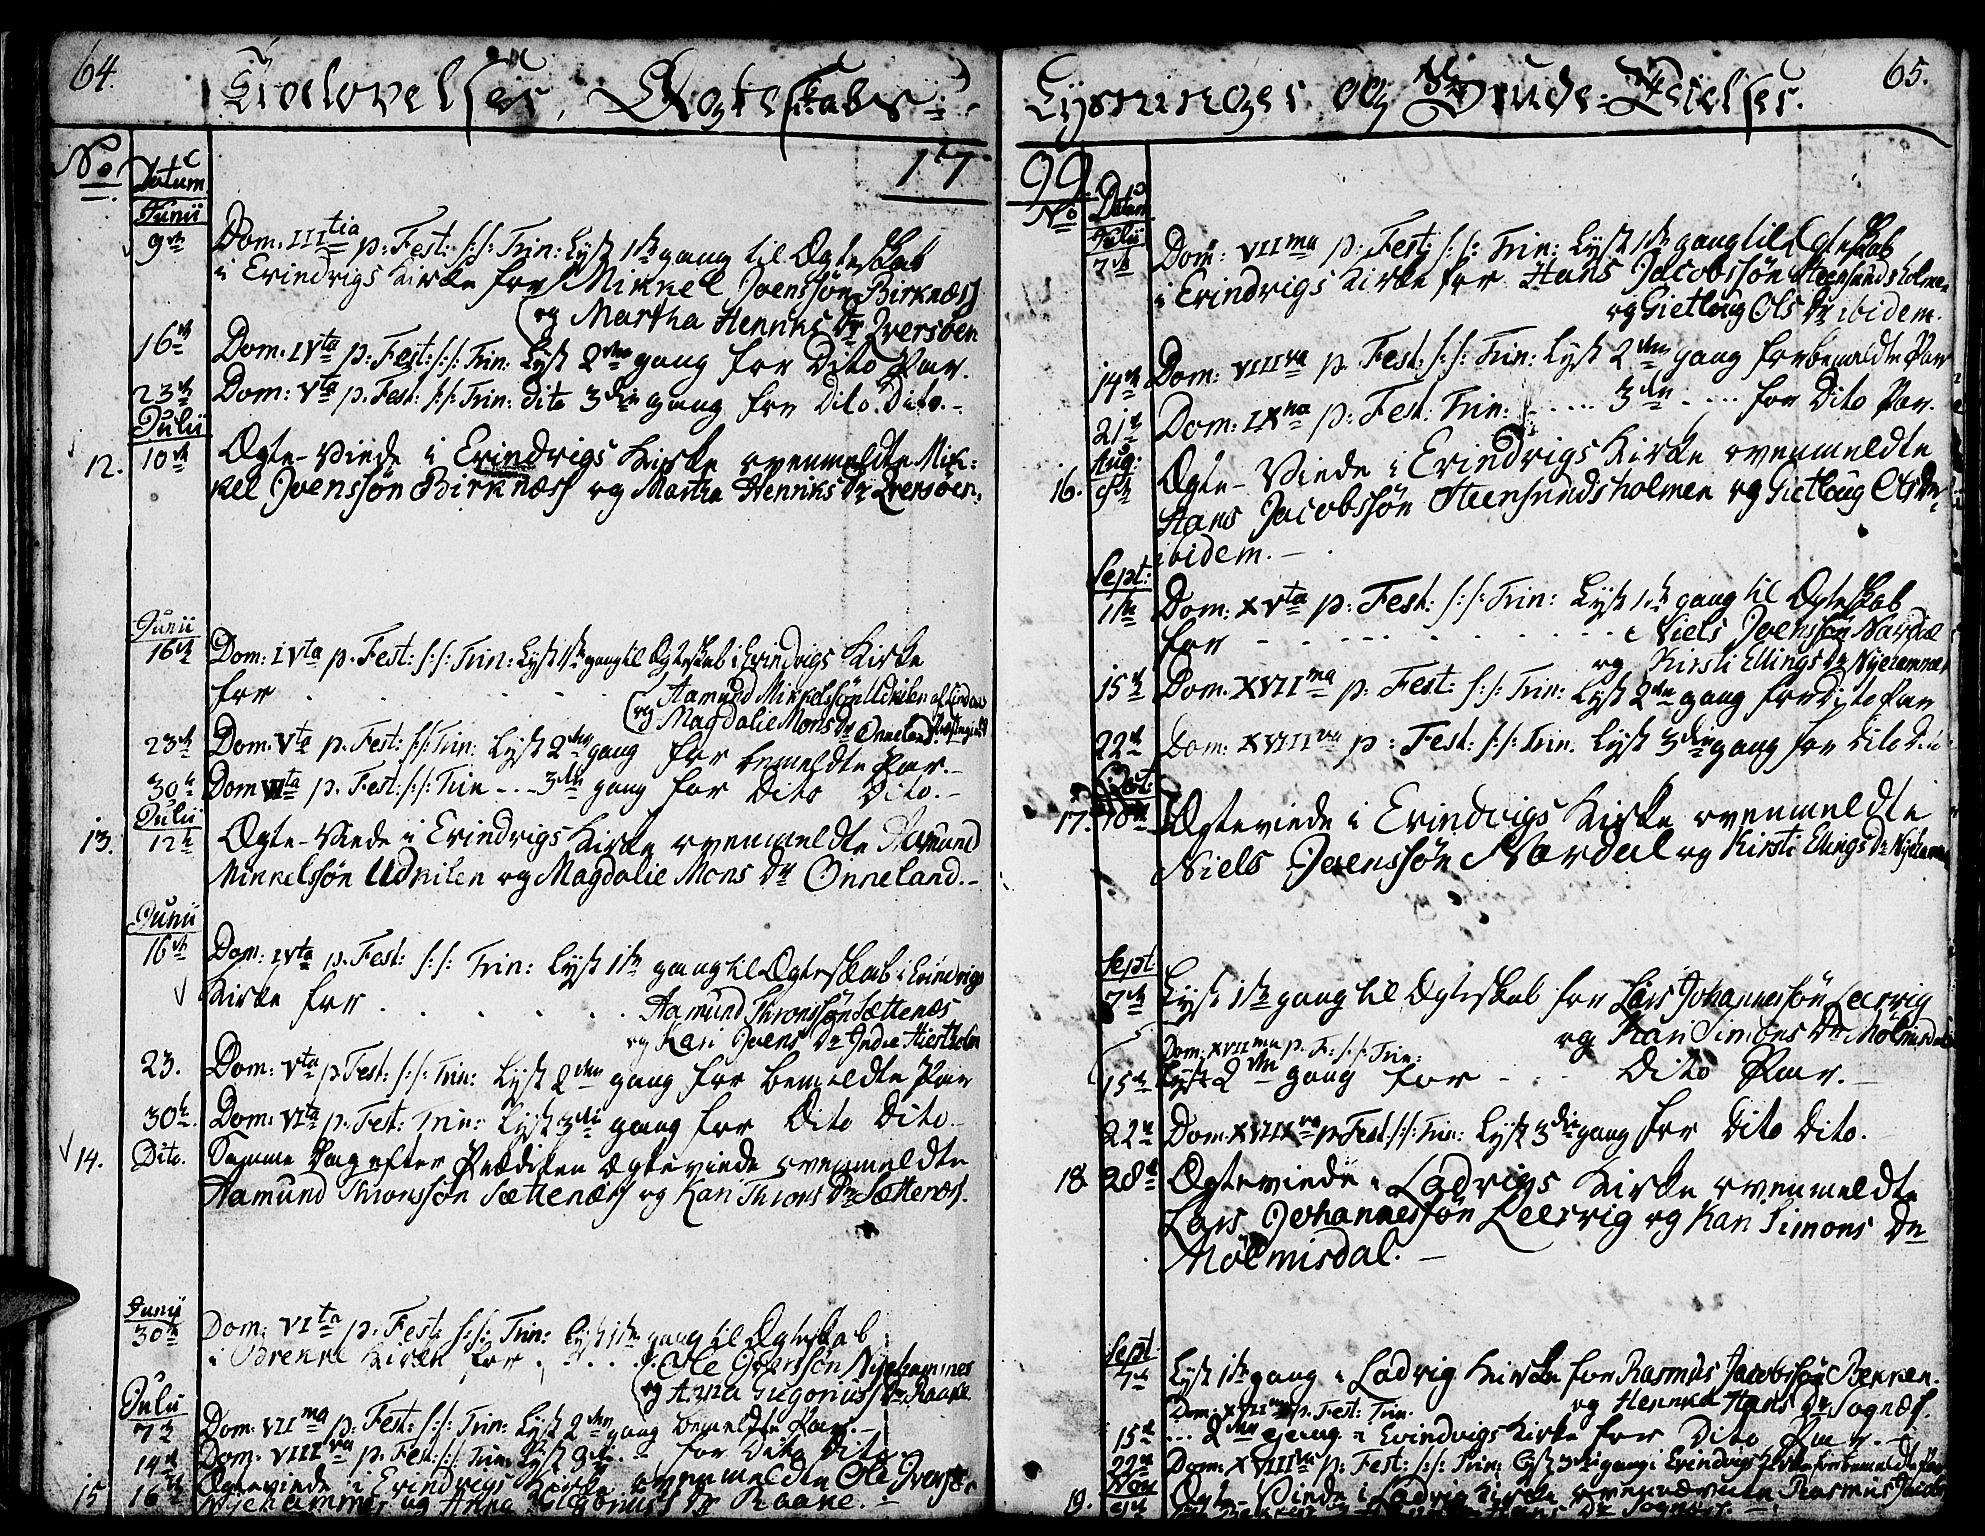 64.
Troelovelser, Ægteskabs-
No
Datum
17
Junii
9de
Dom: IIItia p: Fest: S:S: Trin: Lyst 1ste gang til Ægteskab
i Evindvigs Kirke for Mikkel Joenssøn Birknæss
og Martha Henriks Dr Iversøen
16de
Dom: IVta p: Fest: S:S: Trin: Lyst 2den gang for Dito Par.
23de
Dom: Vta p: Fest: S:S: Trin: dito 3die gang for Dito. Dito.-
Julii
12.
10de
Ægte-Viede i Evindvigs Kirke ovenmeldte Mik:
kel Joenssøn Birknæss og Martha Henriks Dr Iversøen.
Junii
16de
Dom: IVta p: Fest: S:S: Trin: Lyst 1ste gang til Ægteskab i Evindvigs Kirke
for
Aamund Mikkelssøn Udkilen af Lindaas
og Magdalie Mons Dr Onneland
23de
Dom: Vta p: Fest: S:S: Trin: Lyst 2den gang for bemeldte Par.-
30te
Dom VIta p. Fest: S:S: Trin ... 3die gang for Dito Dito.-
Julii
13.
12te
Ægte-Viede i Evindvigs Kirke ovenmeldte Aamund
Mikkelsøn Udkilen og Magdalie Mons Dr Onneland.-
Junii
16de
Dom: IVta p. Fest: S:S: Trin: Lyst 1ste gang til Ægteskab i Evindvigs
Kirke for
Aamund Thronssøn Sættenæs
og Kari Joens Dr Indre Hiestholm
23.
Dom: Vta p Fest: S:S: Trin: Lyst 2den gang for bemeldte Par
30te
Dom: VIta p. Fest: Trin: Lyst 3die gang for Dito Dito.
14.
Dito.
Samme Dag efter Prædiken Ægteviede ovenmeldte
Aamund Thronssøn Sættenæss og Kari Throns Dr Sættenæs.
Junij
30te
Dom: VIta p: Fest: S:S: Trin: Lyst 1ste gang til Ægteskab
i Brekke Kirke for
Ole Iverssøn Nyehammer
og Anna Dr Raane
Julii
7de
Dom: VIIma p: Fest: S:S: Trin: Lyst 2den gang bemeldte Par.-
14de
Dom: VIIIva p: Fest: S:S: Trin: Lyst 3die for Dito Dito
15
16de
Ægteviede i Evindvigs Kirke ovenmeldte Ole Iverssøn
Nyehammer og Anna Dr Raane.-
65.
Lysninger og Brude-Vielser.
99.
No
Datum
Julii
7de
Dom: VIIma p: Fest: S:S: Trin: Lyst 1ste gang til Ægteskab
i Evindvigs Kirke for Hans Jacobssøn Steensundsholmen
og Gietloug Ols Dr ibidem.
14de
Dom: VIIIva p: Fest: S:S: Trin: Lyst 2den gang for bemeldte Par
21de
Dom: IXna p: Fest: Trin: ..... 3die .... for Dito Par.
Aug:
16.
Ægte-Viede i Evindvigs Kirke ovenmeldte
Hans Jacobssøn Steensundsholmen og Gietloug Ols Dr
ibidem.-
Sept:
1ste
Dom: XVta p: Fest: S:S: Trin: Lyst 1ste gang til Ægteskab
for
Niels Joenssøn Nordal
og Kirsti Ellings Dr Nyehammer
15de
Dom: XVIIma p: Fest: S:S: Trin: Lyst 2den gang for Dito Par
22de
Dom: XVIIIva p: Fest: S:S: Trin: Lyst 3die gang for Dito Dito
Oct:
17.
Ægteviede i Evindvigs Kirke ovenmeldte
Niels Joenssøn Nordal og Kirsti Ellings Dr Nyehammer
Sept
7de
Lyst 1ste gang til Ægteskab for Lars Johannessøn Leervig
og Kari Simons Dr Mølmisdal
Dom: XVIIma p: F: S:S: Trin:
15de
Lyst 2den gang for Dito Par.-
22de
Dom: XVIIIva p Fest: S:S: Trin: Lyst 3die gang for Dito Dito.
18
28de
Ægteviede i Ladvigs Kirke ovenmeldte
Lars Johannessøn Leervig og Kari Simons Dr
Mølmisdal.-
Sept
7de
Lyst 1ste gang i Ladvig Kirke for Rasmus Jacobssøn Brekken.
og Hans Dr Sognæs.
Dom: XVIIma p. Fest: Trin.
15de
... 2den gang i Evindvigs Kirke for Dito Par.-
22de
Dom: XVIIIva p: Fest: S:S: Trin: Lyst 3die gang i Evindvigs Kirke for bemeldte Par
Nov
19.
Ægte-Viede i Ladvig Kirke ovennævnte Rasmus Jacobs
Dr Sognæs.-